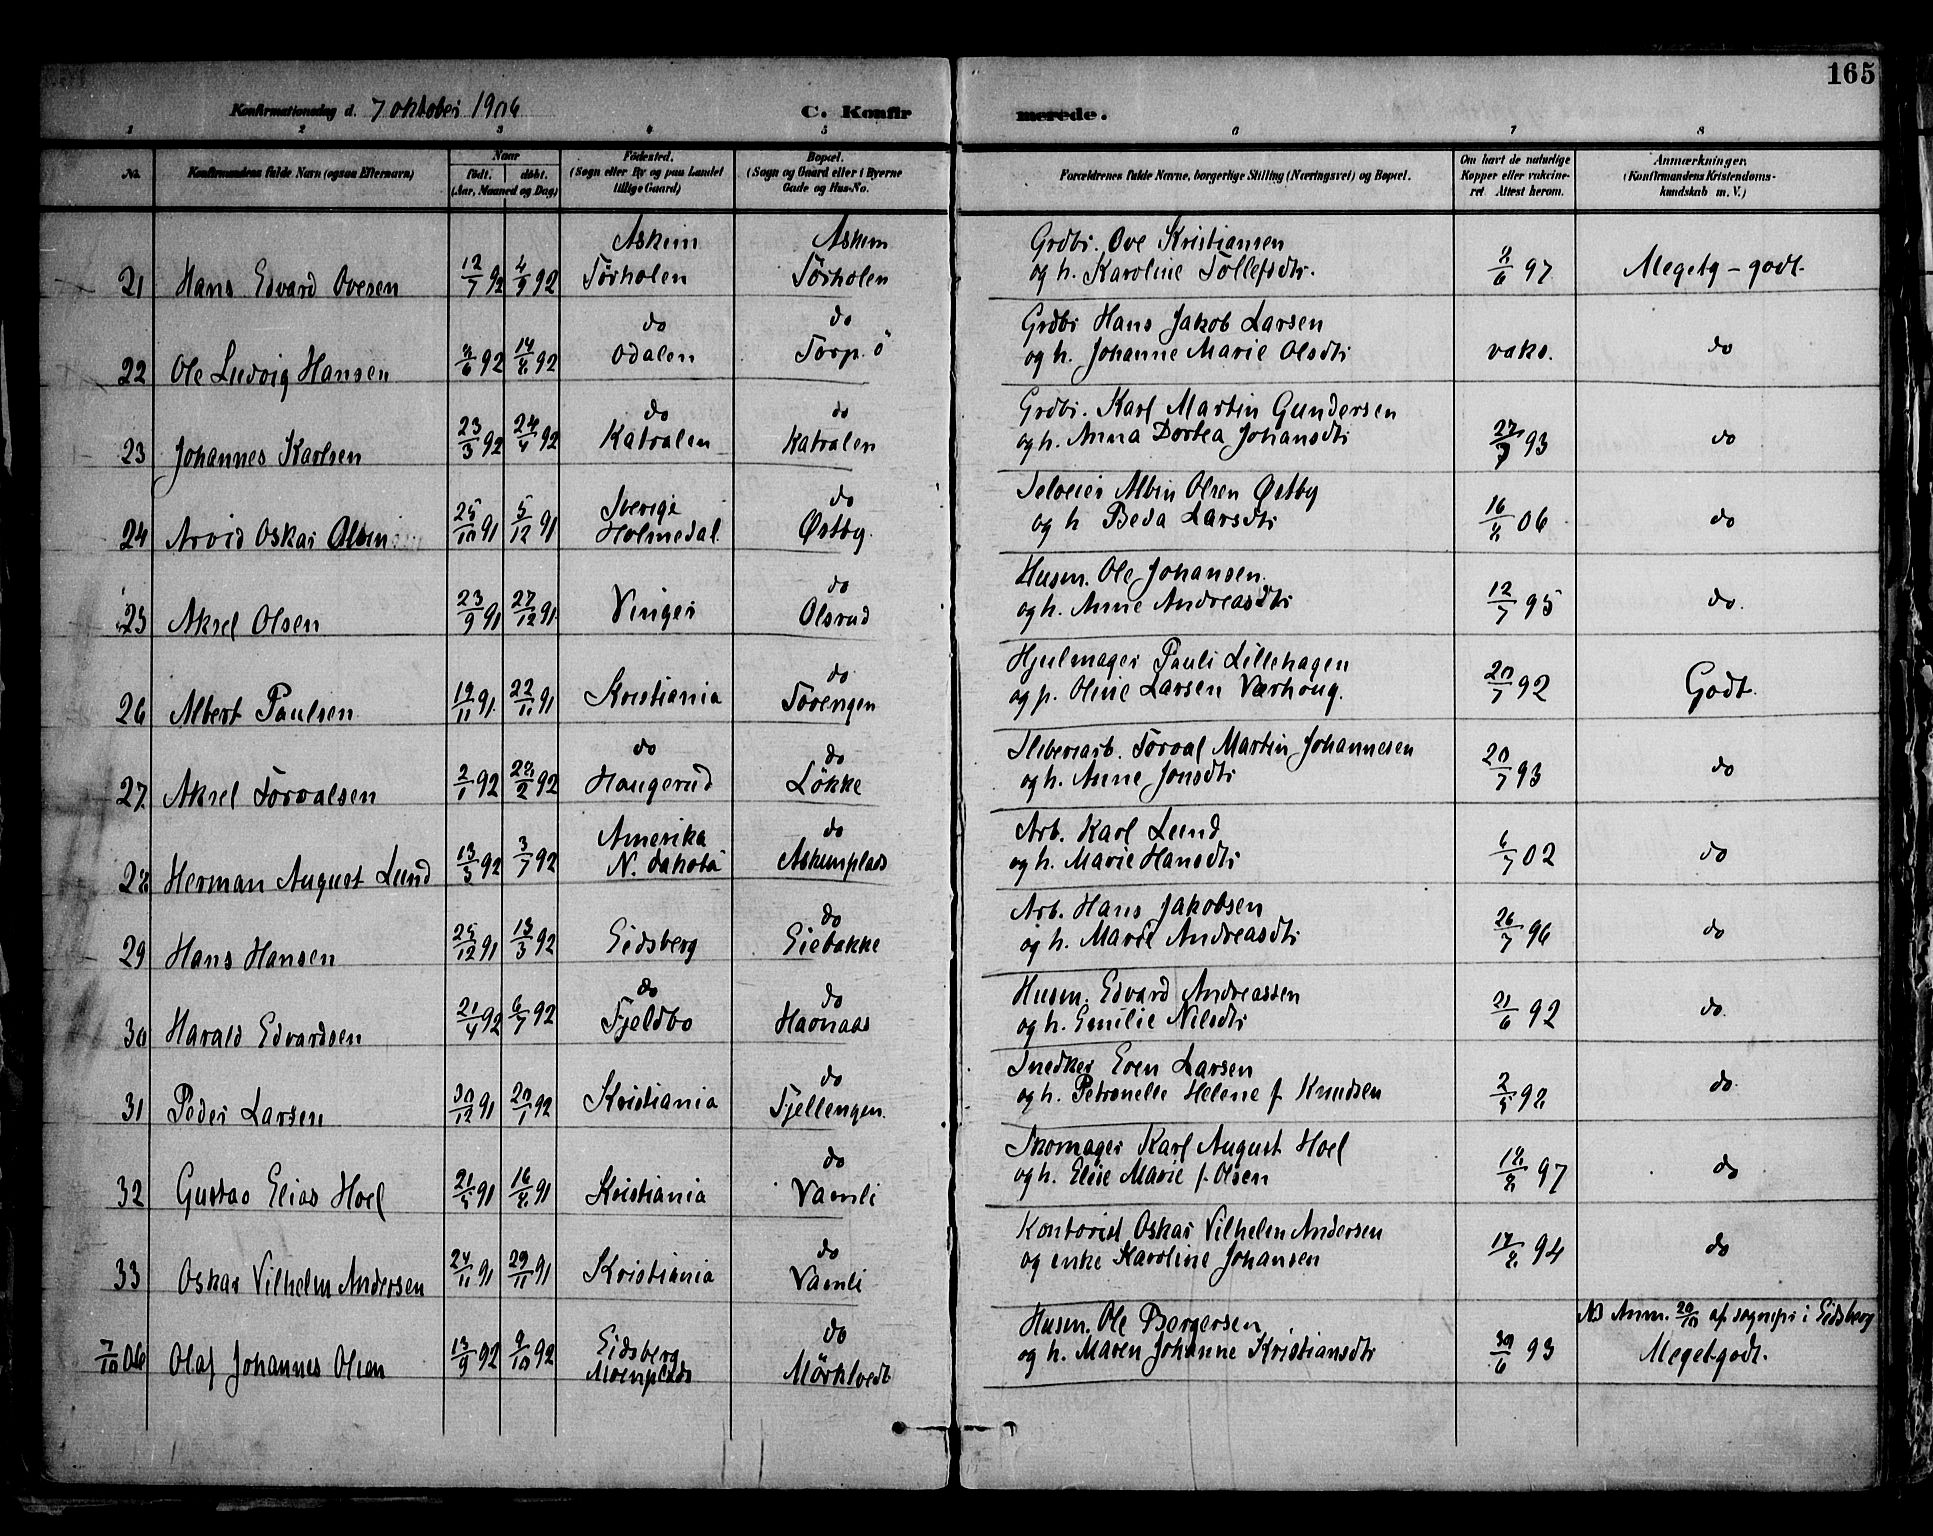 165
Konfirmationsdag d. 7 oktober 1906 C. Konfirmerede.
1 2 3 4 5 6 7 8
No. Konfirmandens fulde Navn (ogsaa Efternavn) Naar født. døbt. (Aar, Maaned og Dag) Fødested. (Sogn eller By og paa Landet tillige Gaard) Bopæl. (Sogn og Gaard eller i Byerne Gade og Hus-No. Forældrenes fulde Navne, borgerlige Stilling (Næringsvei) og Bopæl. Om havt de naturlige Kopper eller vakcineret. Attest herom. Anmærkninger. (Konfirmandens Kristendomskundskab m. V.)
Askim Askim Grdbr. Ove Kristiansen
21 Hans Edvard Ovesen 12/7 92 4/9 92 Torholen Torholen og h. Karoline Tollefsdtr. 8/6 97 Meget g - godt.
do do Grdbr Hans Jakob Larsen
22 Ole Ludvig Hansen 8/6 92 14/8 92 Odalen Torp. ö og h. Johanne Marie Olsdtr vaks. do
do do Grdbr. Karl Martin Gundersen
23 Johannes Karlsen 23/3 92 24/4 92 Katralen Katralen og h. Anna Dortea Johansdtr 27/9 93 do
Sverige do Selveier Albin Olsen Østby
24 Arvid Oskar Albin 25/10 91 5/12 91 Holmedal. Østby. og h Beda Larsdtr 16/8 06 do
do Husm. Ole Johansen.
25 Aksel Olsen 23/9 91 27/12 91 Vinger Olsrud og h. Anne Andreasdtr 12/7 95 do.
do Hjulmager Pauli Lillehagen
26 Albert Paulsen 19/11 91. 22/11 91 Kristiania Torengen og p. Oline Larsen Værhoug. 20/7 92 Godt.
do do Sliberiarb. Torval Martin Johannesen
27 Aksel Torvalsen 2/1 92 28/2 92 Haugerud Løkke og h. Anne Jonsdtr 20/7 93 do
Amerika do Arb. Karl Lund
28 Herman August Lund 13/3 92 3/7 92 N. Dakota Askimplads og h. Marie Hansdtr 6/7 02 do
do Arb. Hans Jakobsen
29 Hans Hansen 25/12 91 13/3 92 Eidsberg Giebakke og h. Marie Andreasdtr 26/7 96 do
do do Husm. Edvard Andreassen
30 Harald Edvardsen 21/4 92 6/7 92 Fjeldbo Havnaas og h. Emilie Nilsdtr 21/6 92 do.
do Snedker Even Larsen
31 Peder Larsen 30/12 91 20/1 92 Kristiania Fjellengen. og h. Petronelle Helene f. Knudsen 2/5 92 do.
do Skomager Karl August Hoel
32 Gustav Elias Hoel 21/5 91 16/8 91 Kristiania Vamli og h. Elise Marie f. Olsen 18/8 97 do
do Kontorist Oskar Vilhelm Andersen
33 Oskar Vilhelm Andersen 24/11 91 29/11 91 Kristiania Vamli og enke Karoline Johansen 17/8 94 do
Eidsberg do Husm. Ole Bergersen NB Anm. 20/10 af sognepr i Eidsberg
7/10 06 Olaf Johannes Olsen 13/9 92 9/10 92 Moenplads Mörkhvedt og h. Maren Johanne Kristiansdtr 30/6 93 Meget godt.